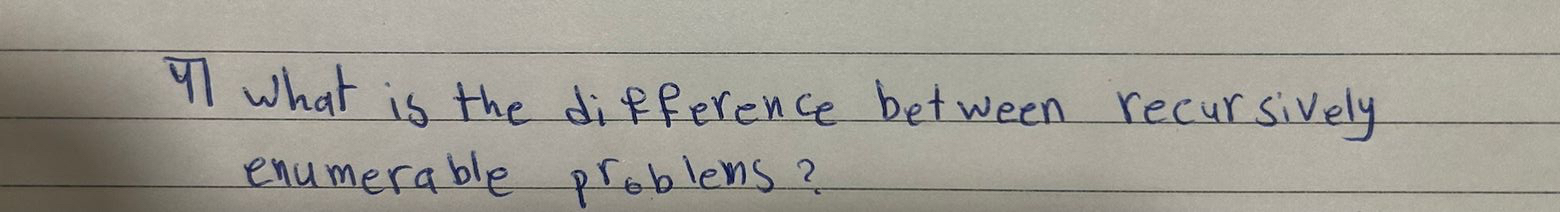 4] what is the difference between recursively
enumerable problems?